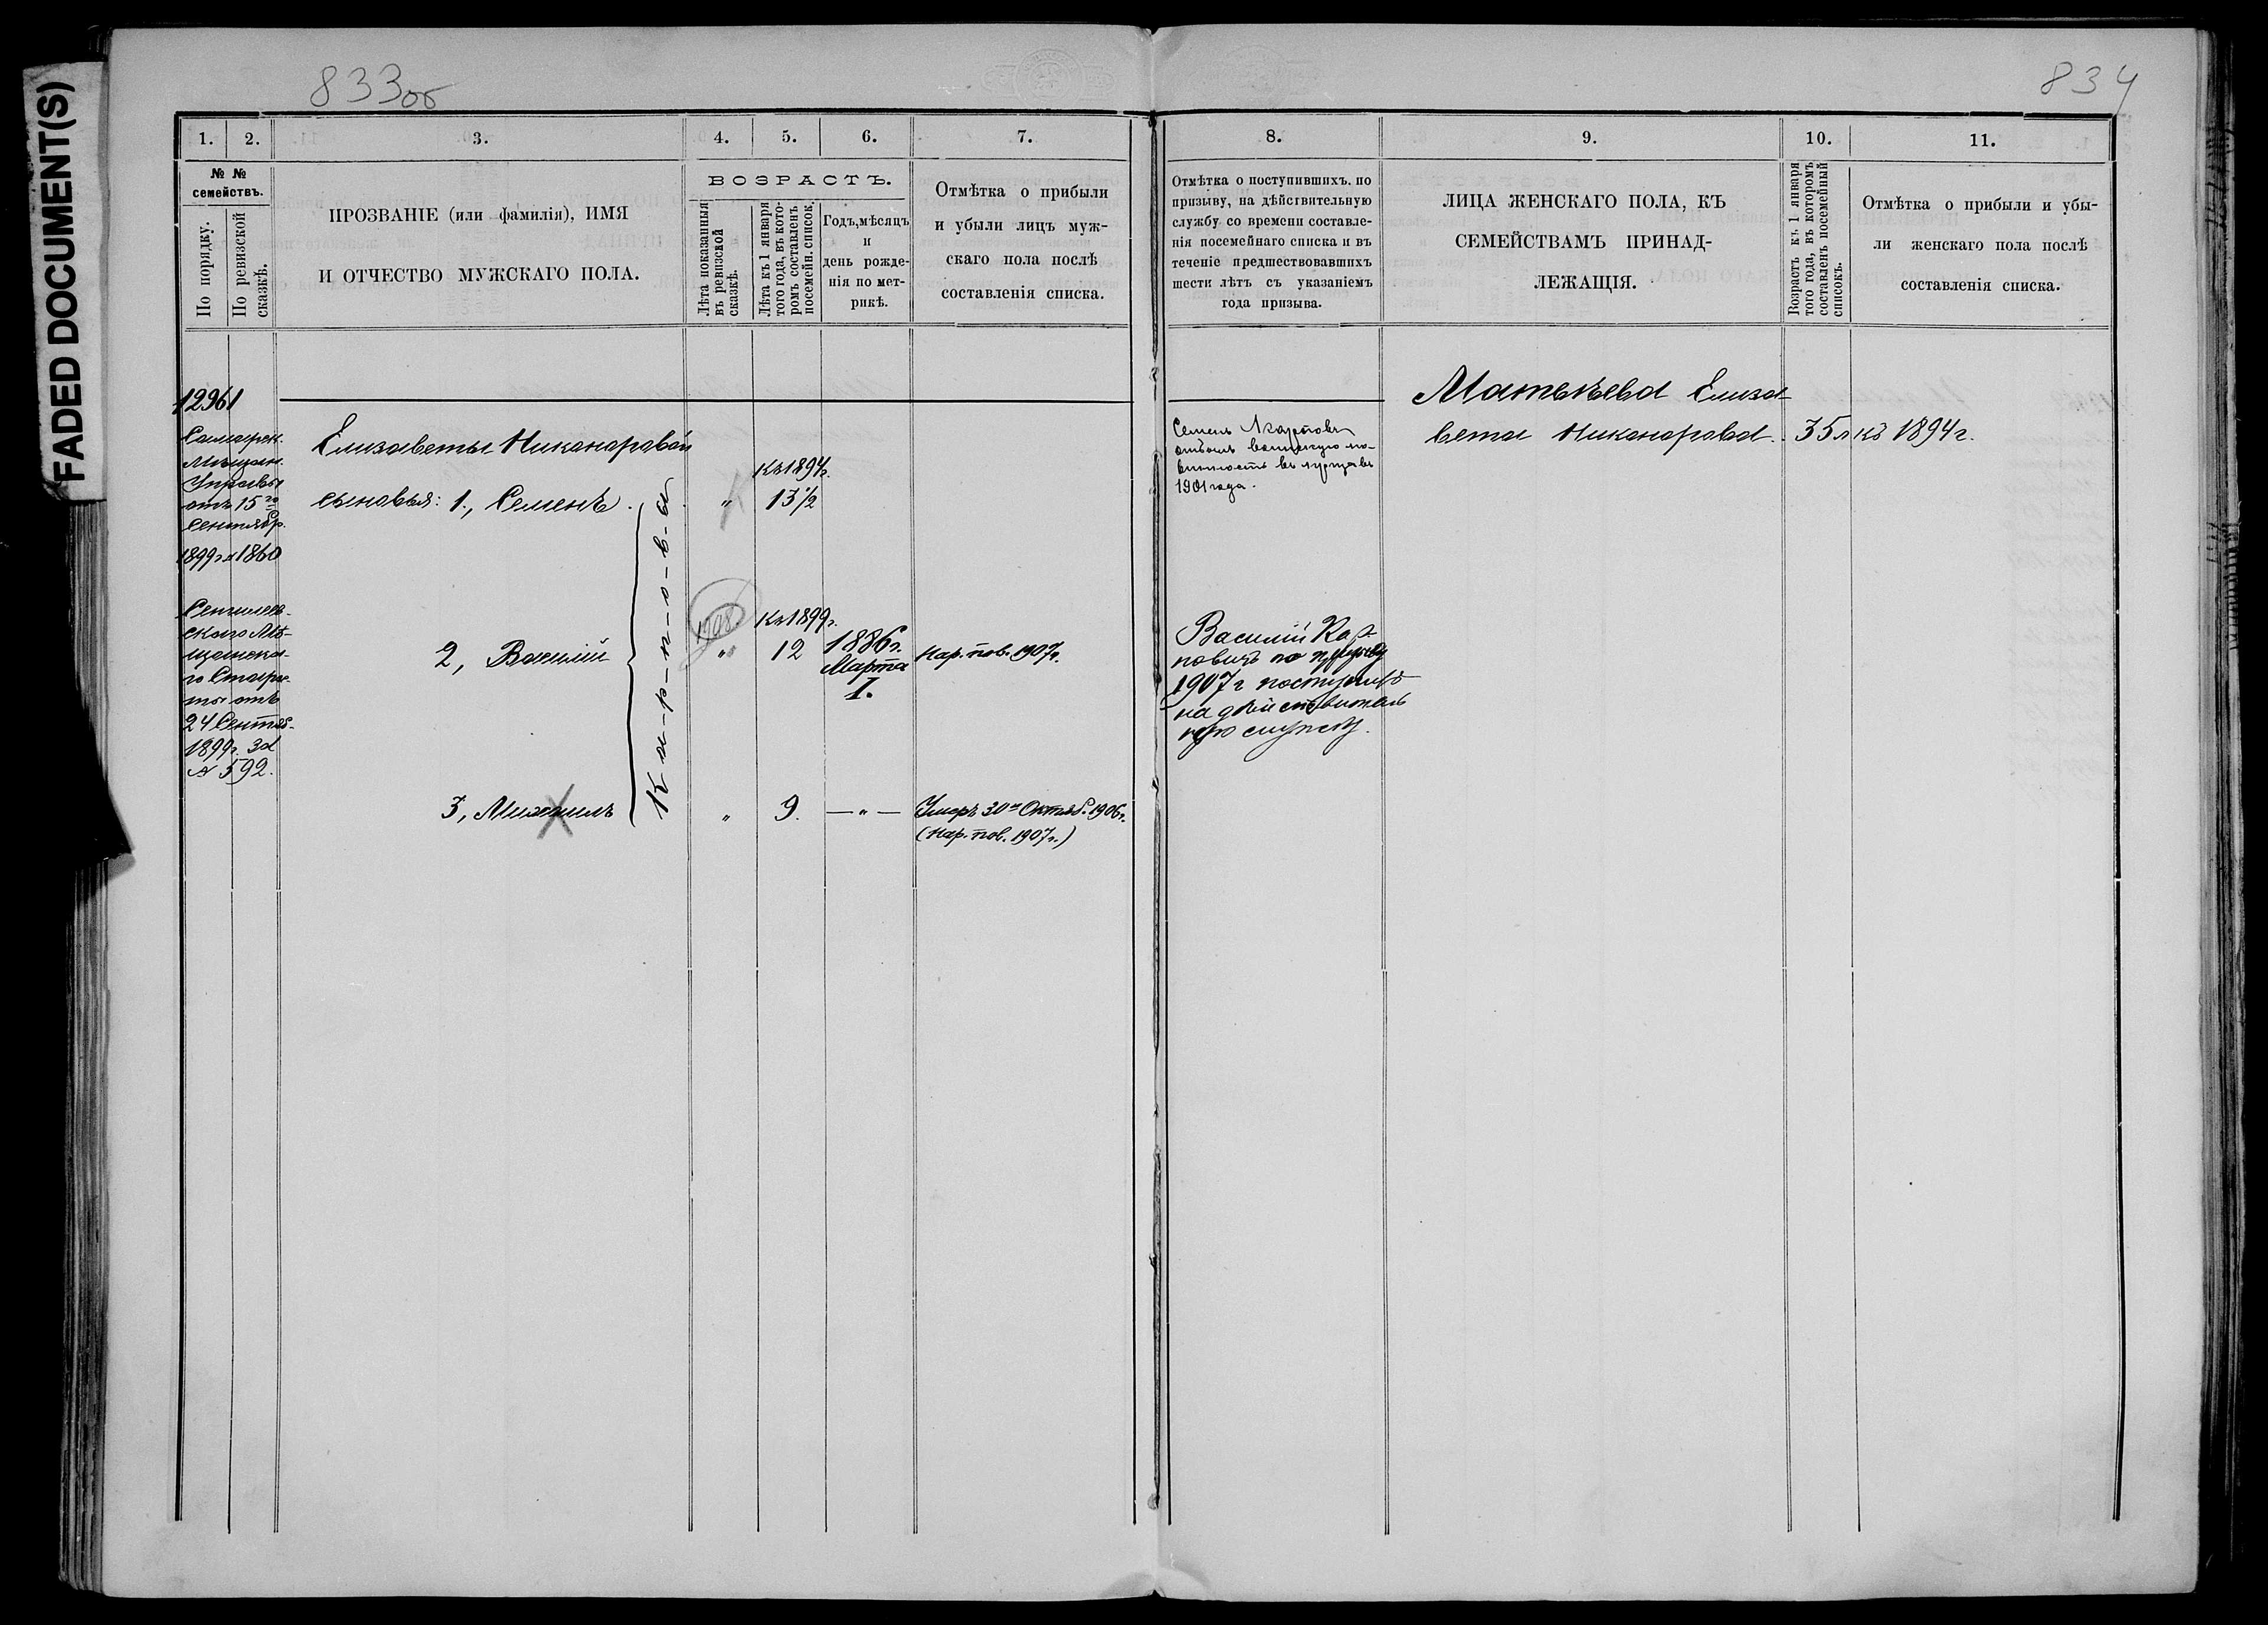 FADED DOCUMENT(S)
833об
834
1. 2. 3. 4. 5. 6. 7. 8. 9. 10. 11.
№ №
семействъ.
По порядку.
По ревизской
сказкѣ.
ПРОЗВАНІЕ (или фамилія), ИМЯ
И ОТЧЕСТВО МУЖСКАГО ПОЛА.
ВОЗРАСТЪ.
Лѣта показанныя
въ ревизской
сказкѣ.
Лѣта къ 1 января
того года, въ кото-
ромъ составленъ
посемейн. список.
Годъ, мѣсяцъ
и
день рожде-
нія по мет-
рикѣ.
Отмѣтка о прибыли
и убыли лицъ муж-
скаго пола послѣ
составленія списка.
Отмѣтка о поступившихъ, по
призыву, на дѣйствительную
службу со времени составле-
нія посемейнаго списка и въ
теченіе предшествовавшихъ
шести лѣтъ съ указаніемъ
года призыва.
ЛИЦА ЖЕНСКАГО ПОЛА, КЪ
СЕМЕЙСТВАМЪ ПРИНАД-
ЛЕЖАЩІЯ.
Возрастъ къ 1 января
того года, въ которомъ
составленъ посемейный
списокъ.
Отмѣтка о прибыли и убы-
ли женскаго пола послѣ
составленія списка.
12961
Самарск.
Мѣщан.
Управы
отъ 15го
Сентябр.
1899г. № 1860
Сенгилеев-
скаго Мѣ-
щанска-
го Старос-
ты отъ
24 Сентяб.
1899г. за
№ 592.
Елизаветы Никанаровой
сыновья: 1., Семенъ.
" Къ 1894г.
13 1/2
2, Василій
1908
" Къ 1899г.
12
1886г.
Марта
1.
Нар. пов. 1907г.
3, Михаилъ
К-а-р-п-о-в-а
" 9. — " —
Умеръ 30го Октяб. 1906г.
(Нар. пов. 1907г.)
Семенъ Карповъ
отбылъ воинскую по-
винность въ призывъ
1901 года.
Василій Кар-
повичъ по призыву
1907 г поступилъ
на дѣйствитель
ную службу.
Матвѣева Елиза-
вета Никанарова. 35 л. къ 1894г.